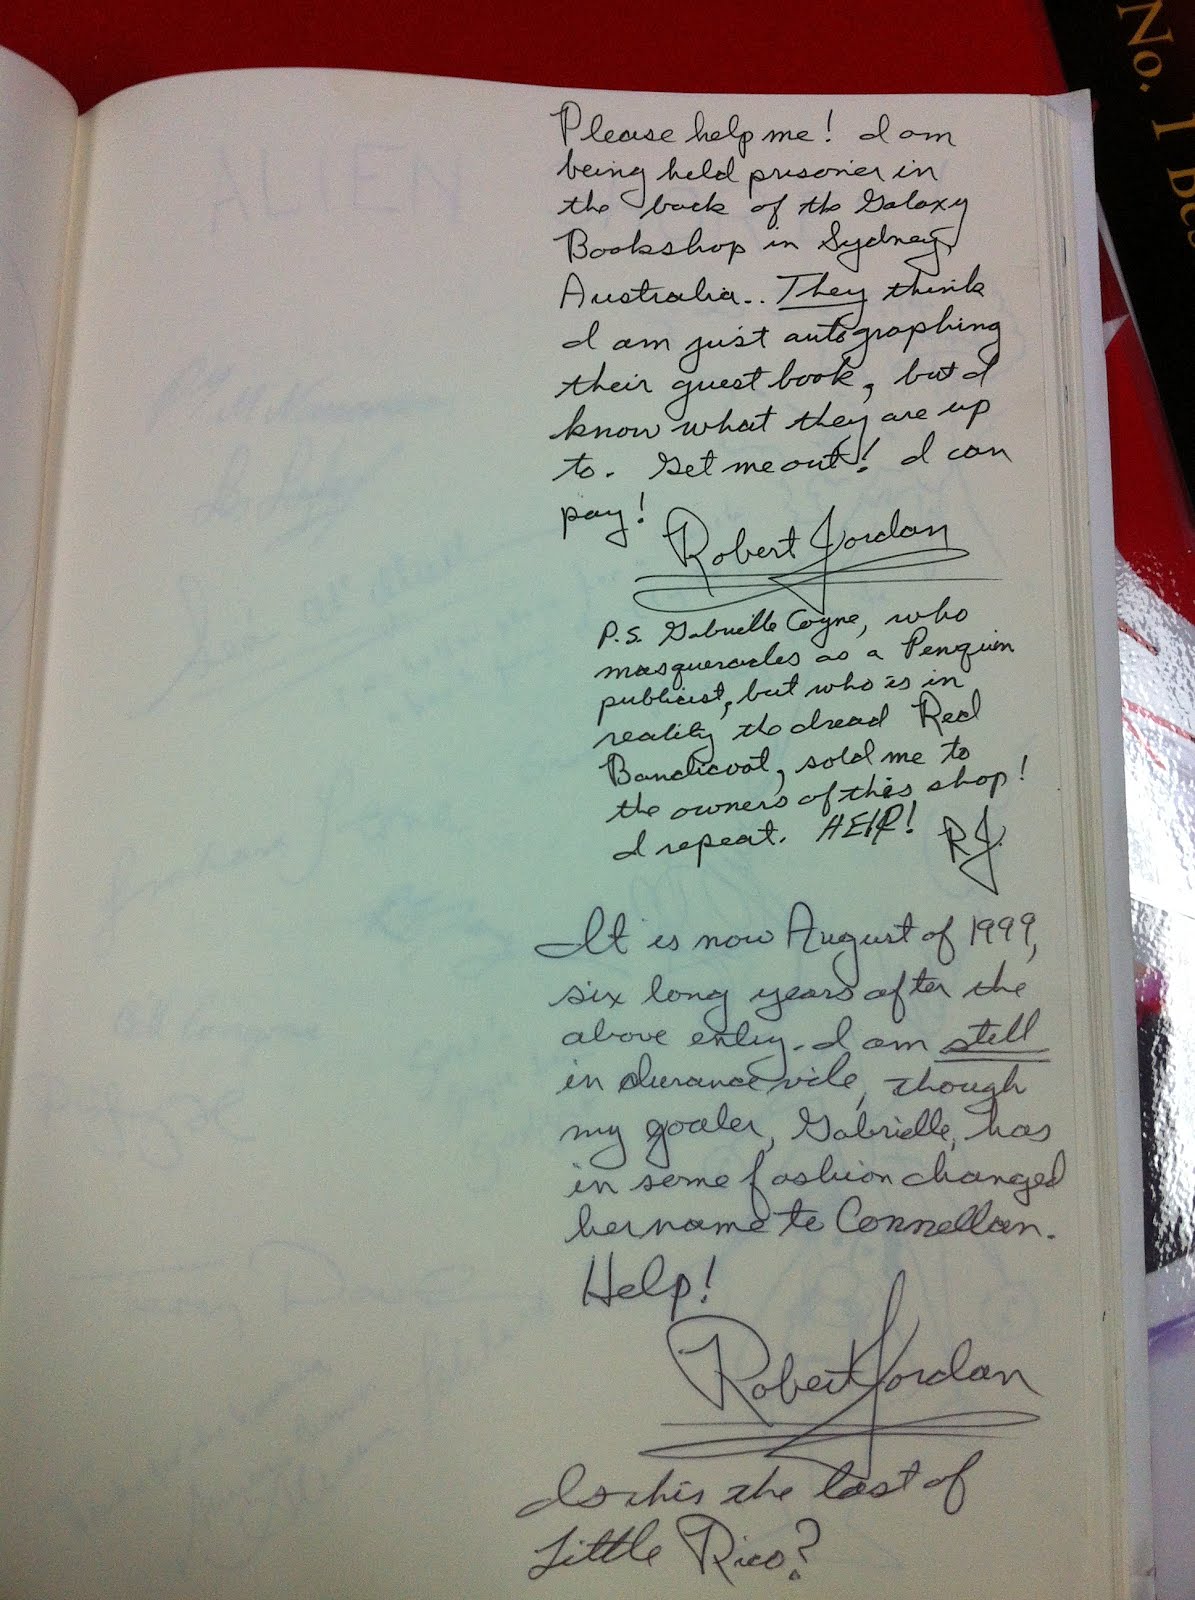 Please help me! I am
being held prisoner in
the back of the Galaxy
Bookshop in Sydney,
Australia.. They think
I am just autographing
their guest book, but I
know what they are up
to. Get me out! I can
pay!
Robert Jordan
P.S. Gabrielle Coyne, who
masquerades as a Penguin
publicist, but who is in
reality the dread Red
Bandicoot, sold me to
the owners of this shop!
I repeat. HELP! RJ.
It is now August of 1999,
six long years after the
above entry. I am still
in durance vile, though
my goaler, Gabrielle, has
in some fashion changed
her name to Connellan.
Help!
Robert Jordan
Is this the last of
Little Rico?
No. 1
ALIEN